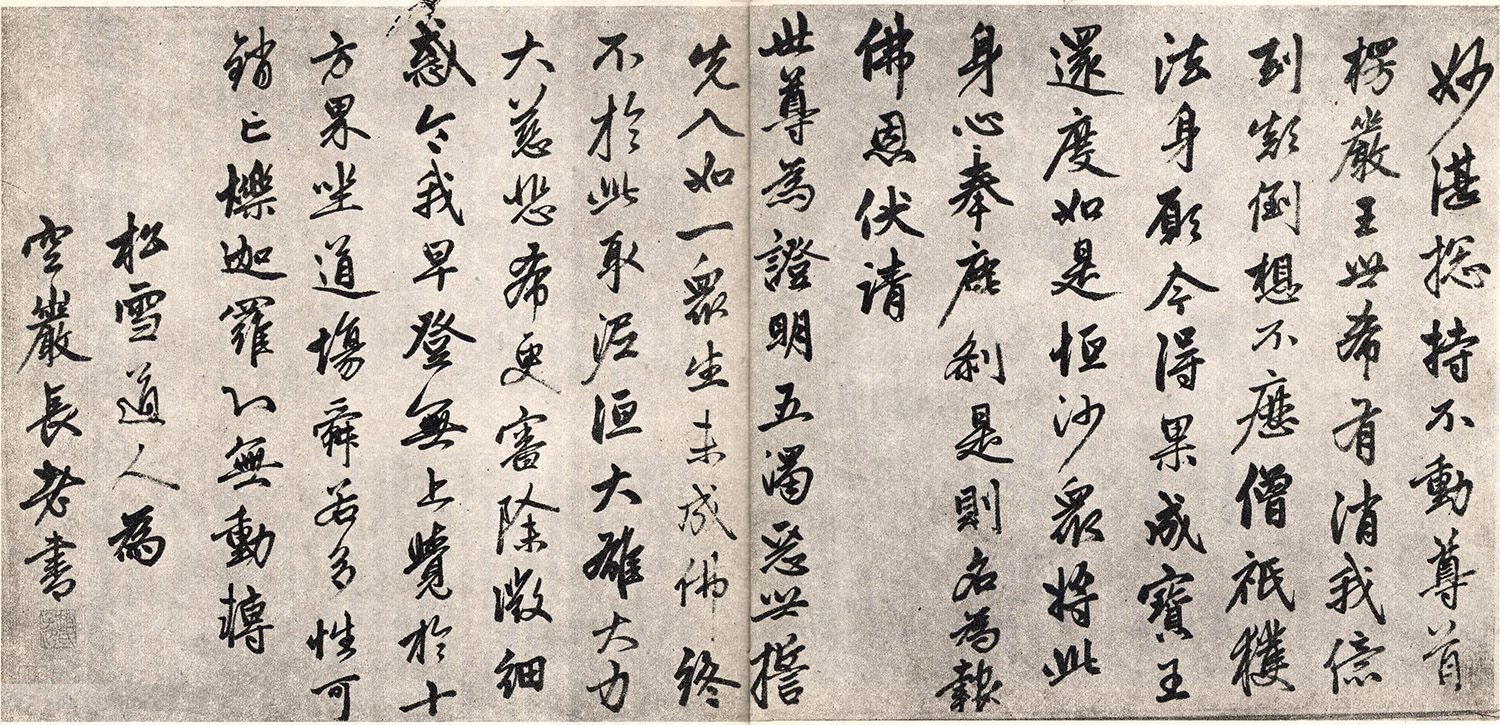 妙湛揔持不動尊首
楞嚴王世希有消我億
劫顛倒想不歷僧祇獲
法身願今得果成寶王
還度如是恒沙衆將此
身心奉塵刹是則名為報
佛恩伏請
世尊為證明五濁惡世誓
先入如一衆生未成佛終
不於此取泥洹大雄大力
大慈悲希更審除微細
惑令我早登無上覺於十
方界坐道場舜若多性可
銷亡爍迦羅心無動轉
松雪道人為
空巖長老書